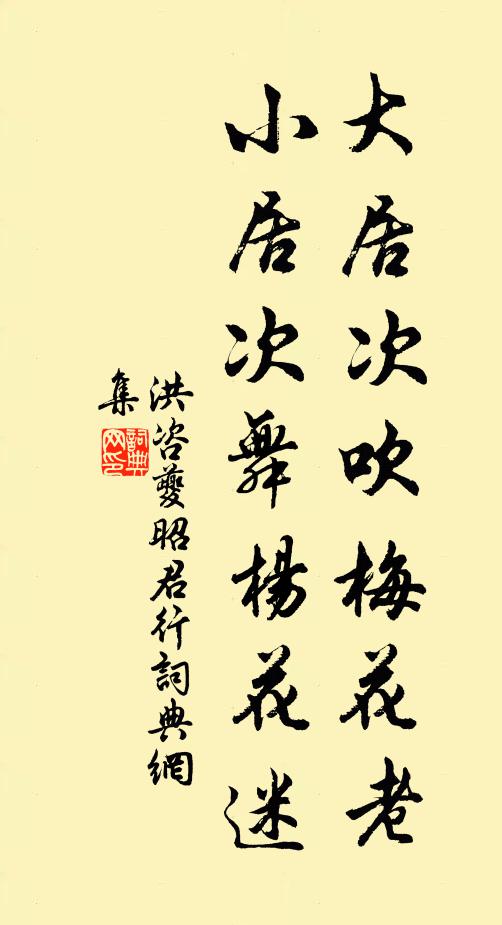 大居次吹梅花老
小居次舞楊花迷
洪咨夔昭君行詞典網
集
詞典
网印